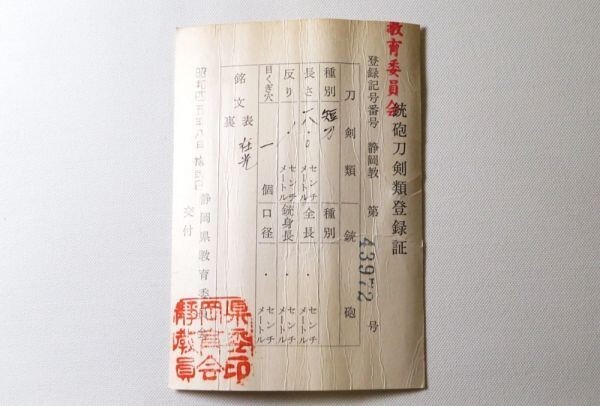 銃砲刀剣類登録証
教育委員会
登録記号番号 静岡教 第 43972 号
刀剣類 銃砲
種別 短刀 種別
長さ 一八.〇 センチメートル 全長 . センチメートル
反り . センチメートル 銃身長 . センチメートル
目くぎ穴 一 個 口径 . センチメートル
銘文 表
裏
昭和四五年八月
静岡県教育委
交付
県委印
岡育会
静教員